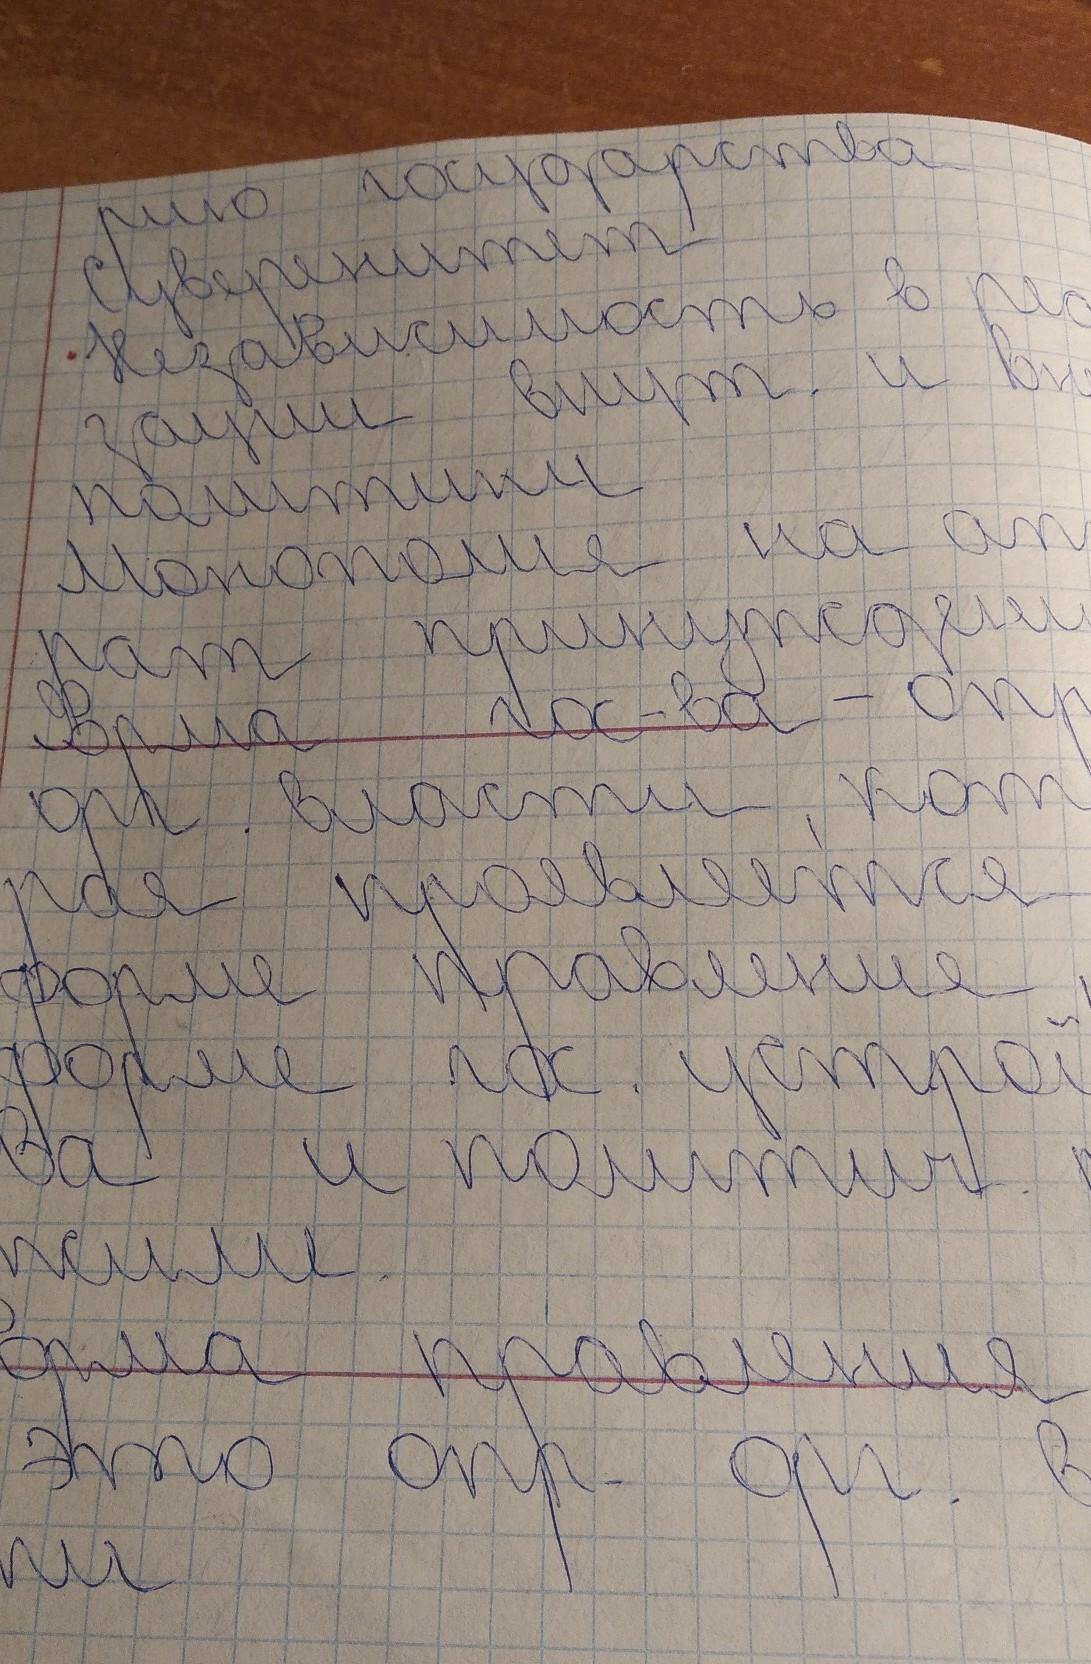 рию государства
Суверенитет
Независимость в реа
зации внут. и вн
политики
Монополия на ап
рат принуждени
Форма гос-ва - опр
орг. власти, кот
рая проявляется
форме правления,
форме гос. устрой
ва и политич. р
жиме.
орма правления
это опр. орг. в
ти